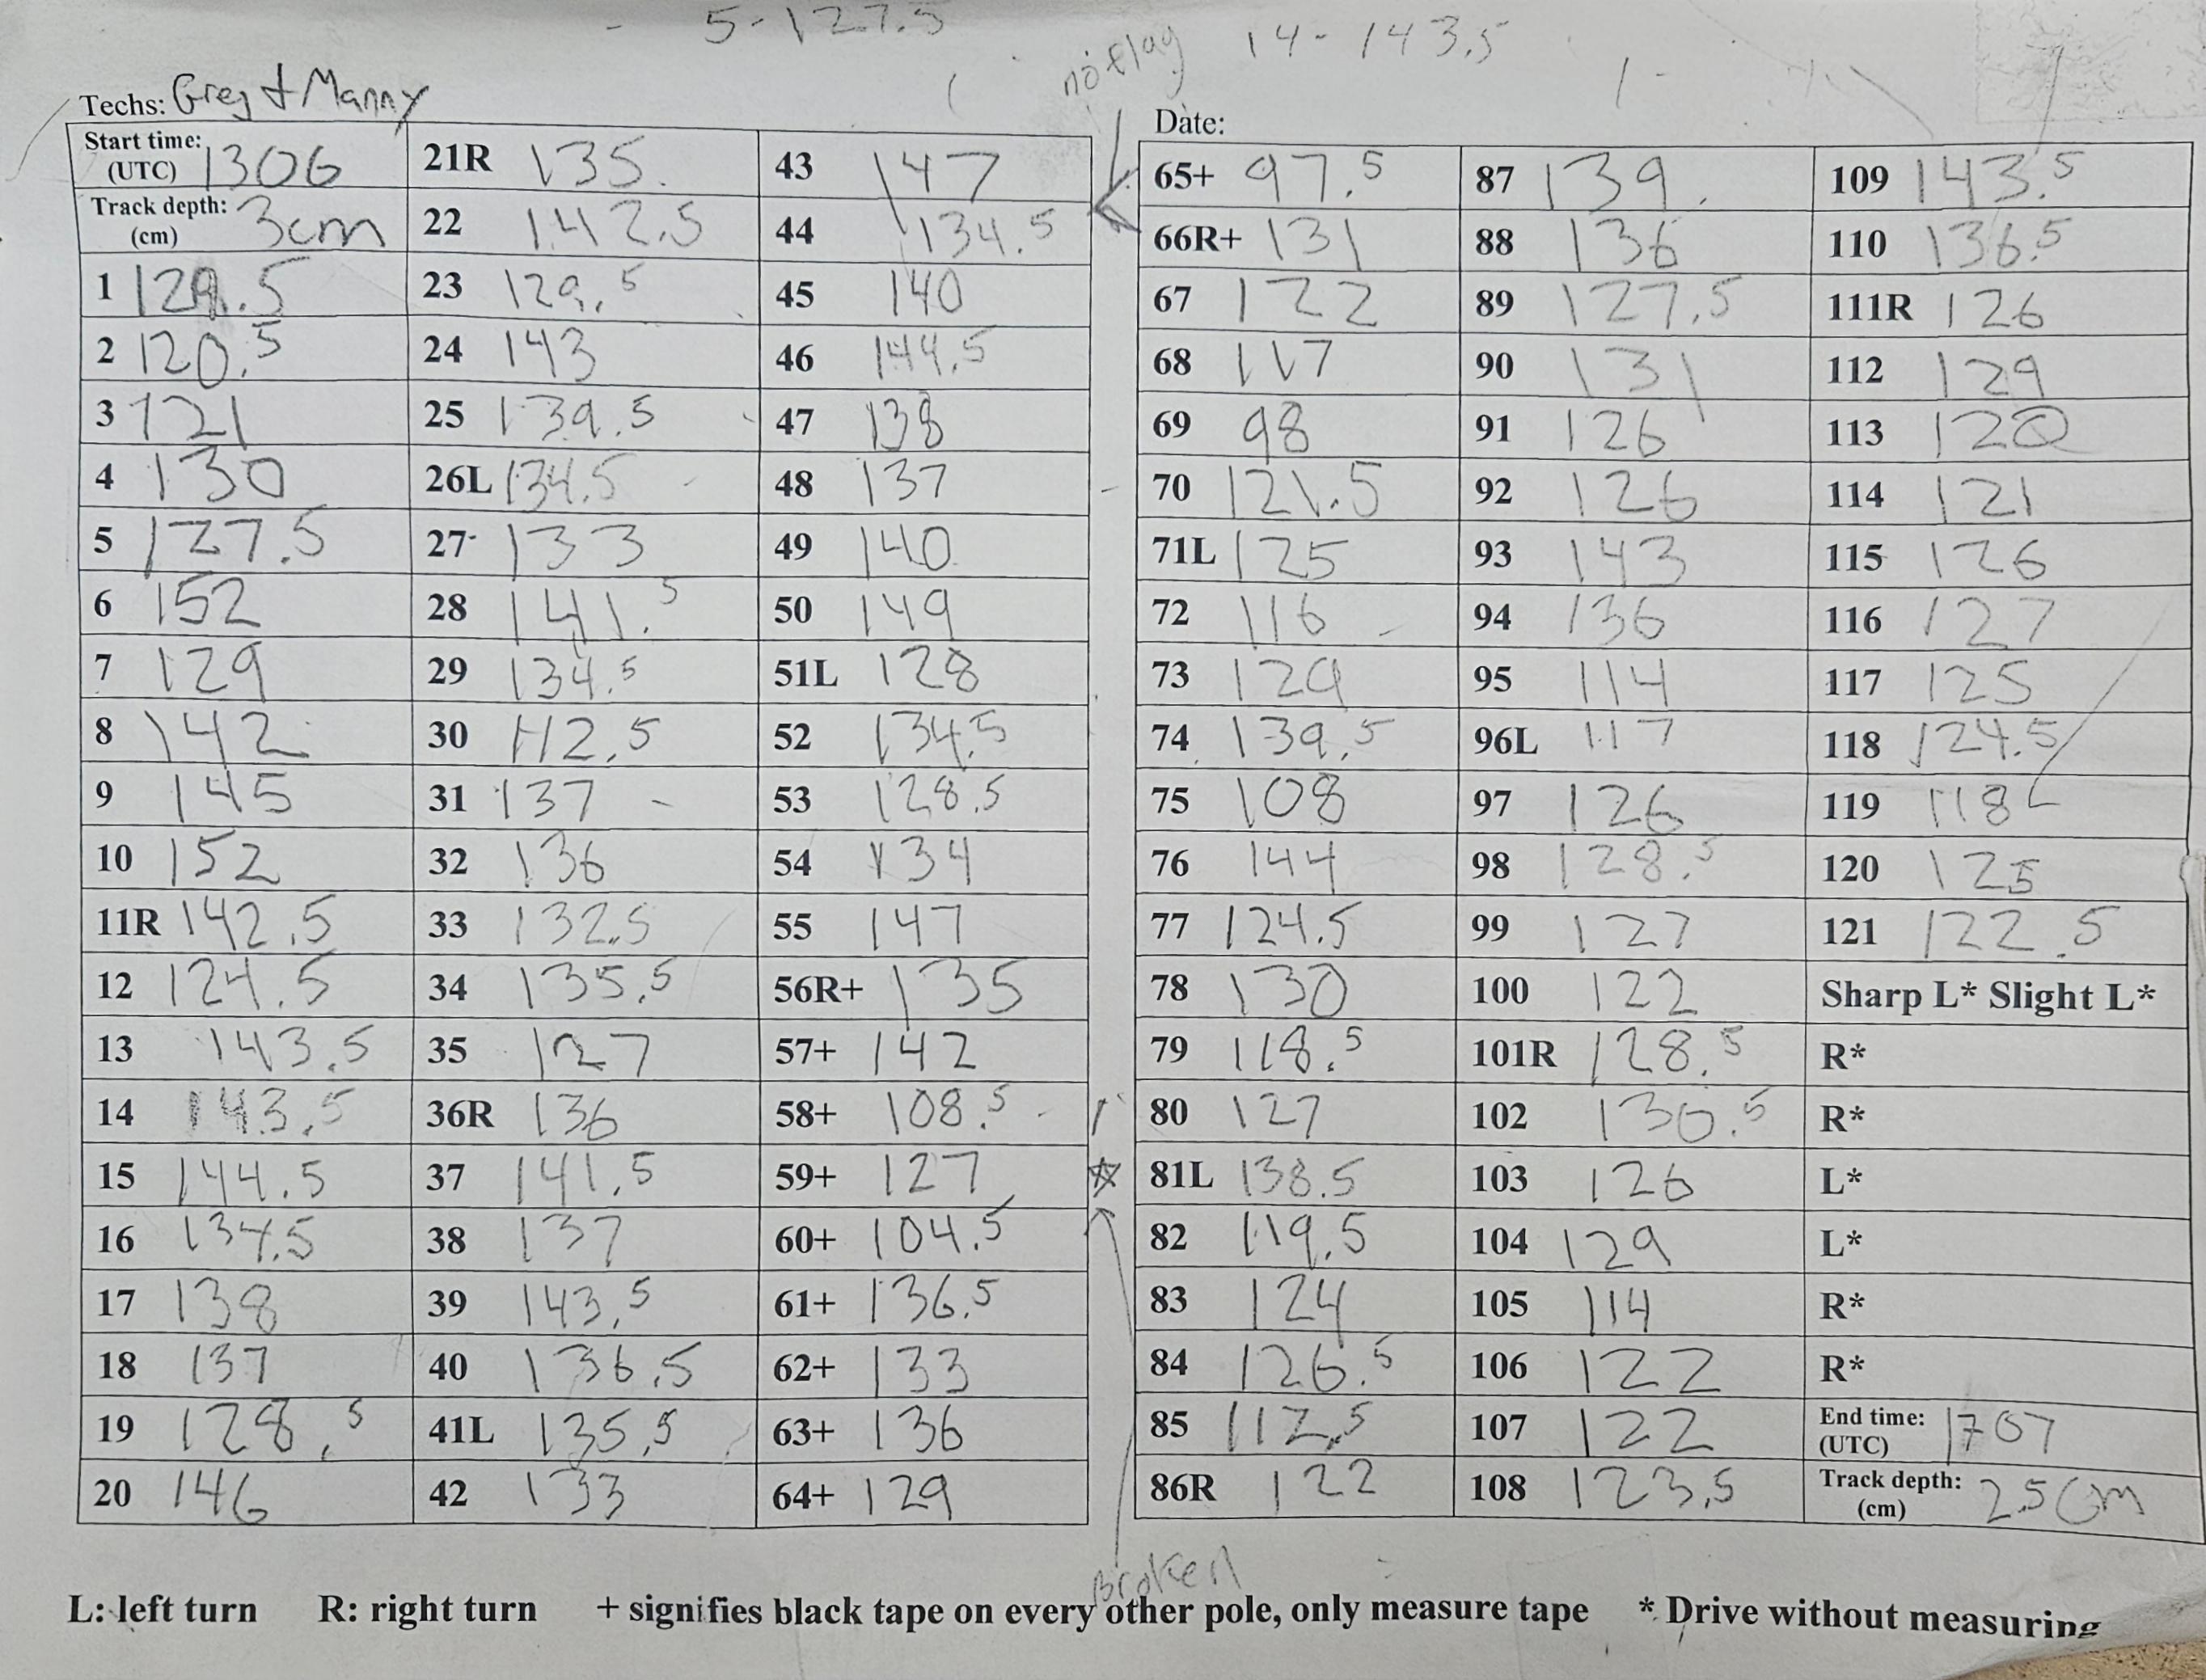 5-127.5
no flag
14-143.5
Techs: Greg + Manny
Start time: (UTC) 1306
Track depth: (cm) 3cm
1 129.5
2 120.5
3 121
4 130
5 127.5
6 152
7 129
8 142
9 145
10 152
11R 142.5
12 124.5
13 143.5
14 143.5
15 144.5
16 134.5
17 138
18 137
19 128.5
20 146
21R 135.
22 142.5
23 129.5
24 143
25 139.5
26L 134.5
27 133
28 141.5
29 134.5
30 112.5
31 137
32 136
33 132.5
34 135.5
35 127
36R 136
37 141.5
38 137
39 143.5
40 136.5
41L 135.5
42 133
43 147
44 134.5
45 140
46 144.5
47 138
48 137
49 140
50 149
51L 128
52 134.5
53 128.5
54 134
55 147
56R+ 135
57+ 142
58+ 108.5
59+ 127
60+ 104.5
61+ 136.5
62+ 133
63+ 136
64+ 129
Date:
65+ 97.5
66R+ 131
67 122
68 117
69 98
70 121.5
71L 125
72 116
73 129
74 139.5
75 108
76 144
77 124.5
78 130
79 118.5
80 127
81L 138.5
82 119.5
83 124
84 126.5
85 112.5
86R 122
87 139.
88 136
89 127.5
90 131
91 126
92 126
93 143
94 136
95 114
96L 117
97 126
98 128.5
99 127
100 122
101R 128.5
102 130.5
103 126
104 129
105 114
106 122
107 122
108 123.5
109 143.5
110 136.5
111R 126
112 129
113 120
114 121
115 126
116 127
117 125
118 124.5
119 118
120 125
121 122.5
Sharp L* Slight L*
R*
R*
L*
L*
R*
R*
End time: (UTC) 1707
Track depth: (cm) 2.5cm
Broken
L: left turn R: right turn + signifies black tape on every other pole, only measure tape * Drive without measuring